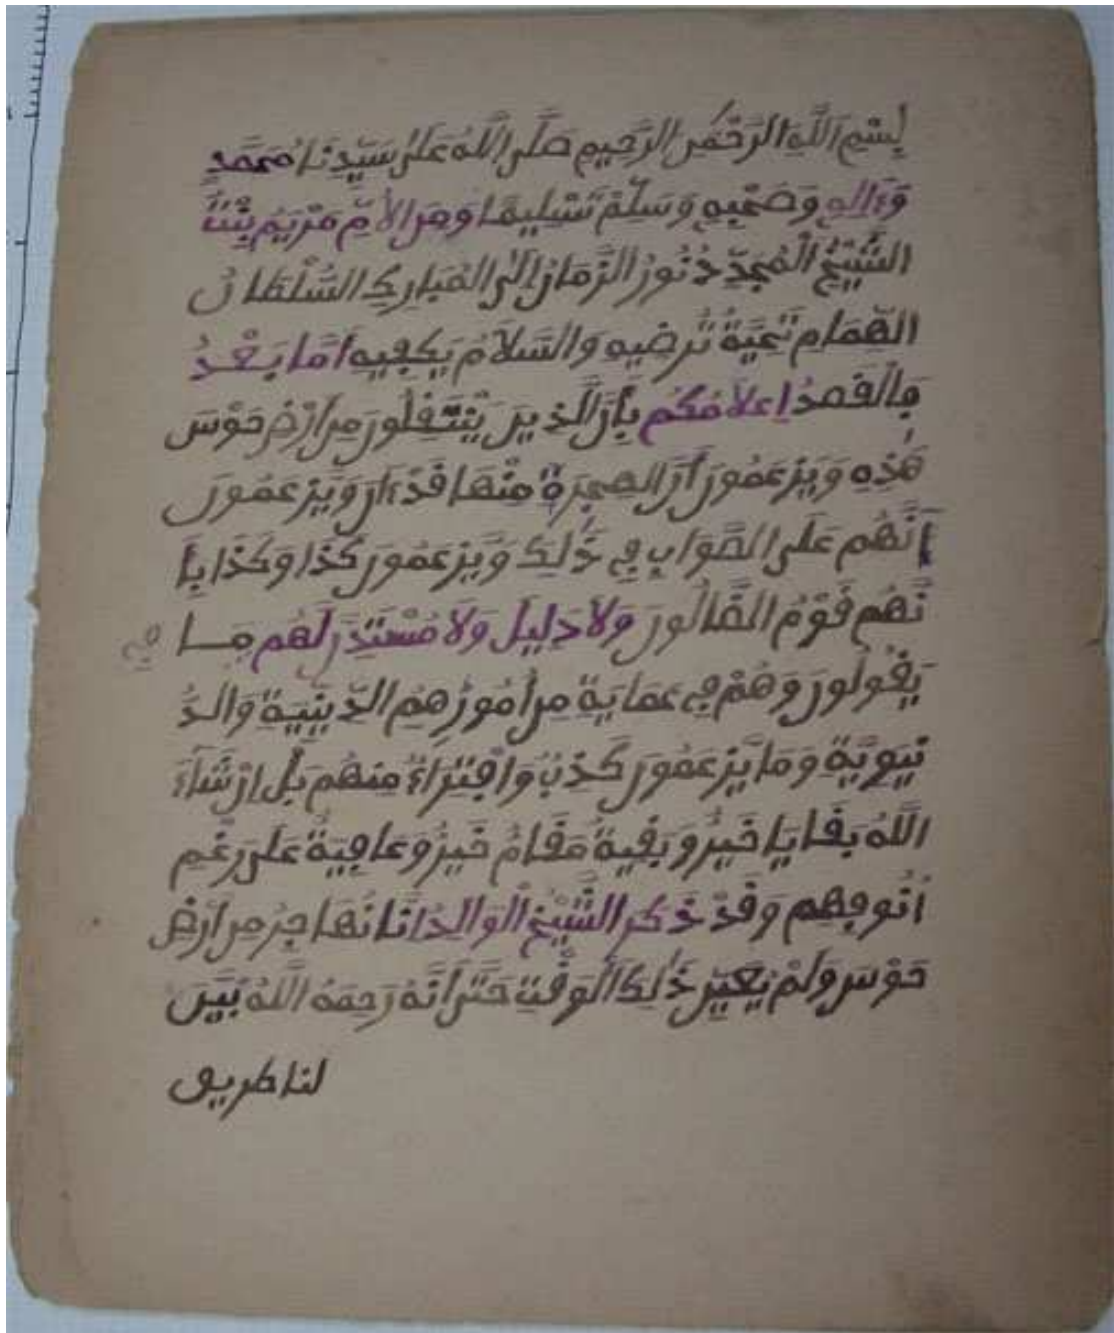 بِسْمِ اللَّهِ الرَّحْمٰنِ الرَّحِيمِ صَلَّى اللَّهُ عَلَى سَيِّدِنَا مُحَمَّدٍ
وَءَالِهِ وَصَحْبِهِ وَسَلِّمْ تَسْلِيمًا وَمِنَ الْأُمِّ مَرْيَمُ بِنْتُ
الشَّيْخِ الْمُجَدِّدِ نُورُ الزَّمَانِ إِلَى الْمُبَارِكِ السُّلْطَانُ
الهُمَامِ تَحِيَّةٌ تُرضِيهِ وَالسَّلَامُ يَكْفِيهِ أَمَّا بَعْدُ
فَالْقَصْدُ إِعْلَامُكُمْ بِأَنَّ الَّذِينَ يَنْتَقِلُونَ مِنْ أَرْضِ حَوْسَ
هَٰذِهِ وَيَزْعَمُونَ أَنَّ الهِجْرَةَ مِنْهَا قَدْ ءَانَ وَيَزْعَمُونَ
أَنَّهُم عَلَى الصَّوَابِ فِي ذَٰلِكَ وَيَزْعَمُونَ كَذَا وَكَذَا بِأَ
نَّهُم قَوْمُ الضَّالُّونَ وَلَا دَلِيلَ وَلَا مُسْتَنَدَ لَهُم فِمَا
يَقُولُونَ وَهُمْ فِي عَمَايَةٍ مِنْ أُمُورِهِمِ الدِّينِيَّةِ وَالدُّ
نْيَوِيَّةِ وَمَا يَزْعَمُونَ كَذِبٌ وَافْتِرَاءٌ مِنهُم بَلْ إِنْ شَاءَ
اللَّهُ بَقَايَا خَيْرٌ وَبَقِيَةٌ مَقَامُ خَيْرٌ وَعَافِيَةٌ عَلَى رَغْمِ
أُنُوفِهِم وَقَدْ ذَكَرَ الشَّيْخُ الْوَالِدُ أَنَّا نُهَاجِرُ مِنْ أَرْضِ
حَوْسَ وَلَمْ يُعَيِّنْ ذَٰلِكَ الْوَقْتَ حَتَّى أَنَّهُ رَحِمَهُ اللَّهُ بَيَّنَ
لنا طريق